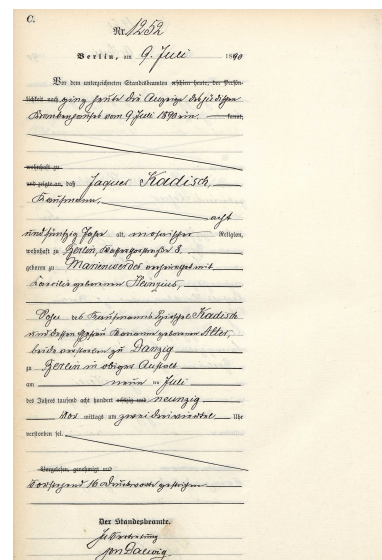 C.
Nr. 1252
Berlin, am 9. Juli 1890
Vor dem unterzeichneten Standesbeamten erschien heute, der Persön-
lichkeit nach ging heute die Anzeige des jüdischen
Krankenhauses vom 9 Juli 1890 ein. kannt,
wohnhaft zu
und zeigte an, daß Jaques Kadisch,
Kaufmann, acht
und fünfzig Jahre alt, mosaischer Religion,
wohnhaft zu Berlin, 8,
geboren zu Marienwerder verheiratet mit
Caecilie geborenen Heinzius,
Sohn des Kaufmanns Kadisch
und dessen Ehefrau geborenen Alter,
beide verstorben zu Danzig
zu Berlin in obiger Anstalt
am neun ten Juli
des Jahres tausend acht hundert achtzig und neunzig
Vor mittags um zwei dreiviertel Uhr
verstorben sei.
Vorgelesen, genehmigt und
Vorstehend 16 Druckworte gestrichen
Der Standesbeamte.
In Vertretung